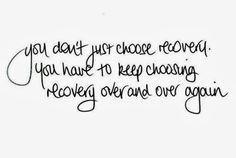 you don't just choose recovery.
You have to keep choosing
recovery over and over again